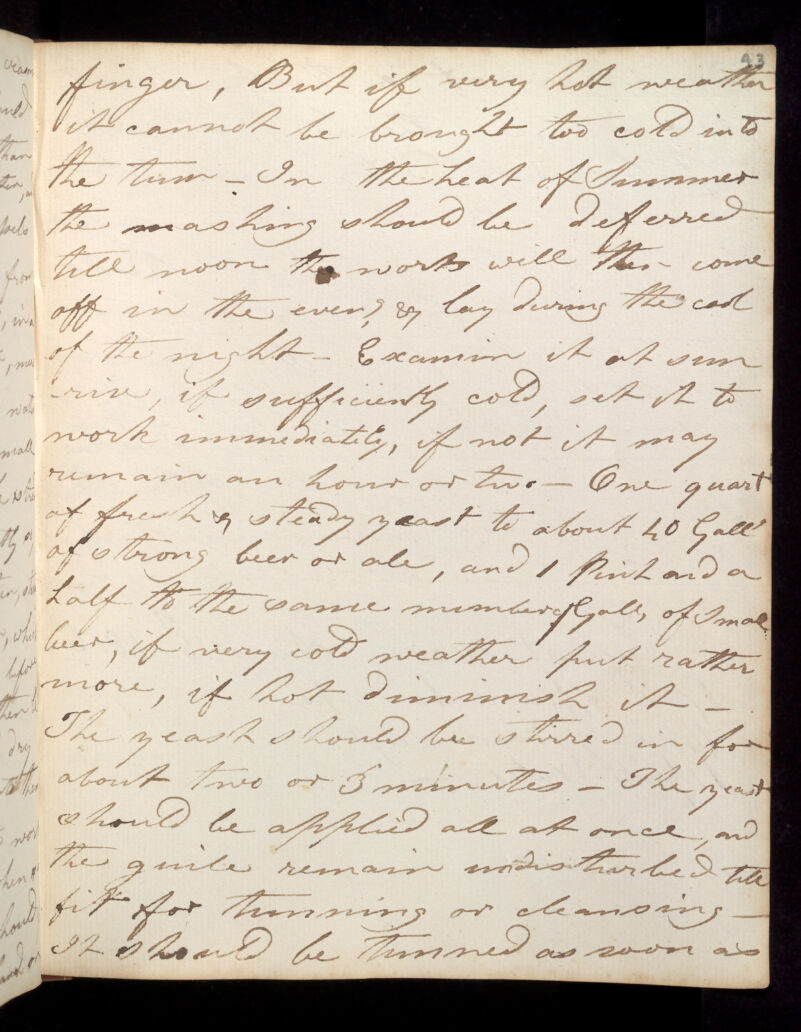 43
finger, But if very hot weather
it cannot be brought too cold into
the tunn – In the heat of Summer
the mashing should be deferred
till noon the worts will then come
off in the eveng, & lay during the cool
of the night – Examin it at sun
-rise, if sufficiently cold, set it to
work immediately, if not it may
remain an hour or two – One quart
of fresh & steady yeast to about 40 Galls
of strong beer or ale, and 1 Pint and a
half to the same number of Galls, of Small
beer, if very cold weather put rather
more, if hot diminish it –
The yeast should be stirred in for
about two or 3 minutes – The yeast
should be applied all at once, and
the guile remain undisturbed till
fit for tunning or cleansing –
It should be tunned as soon as